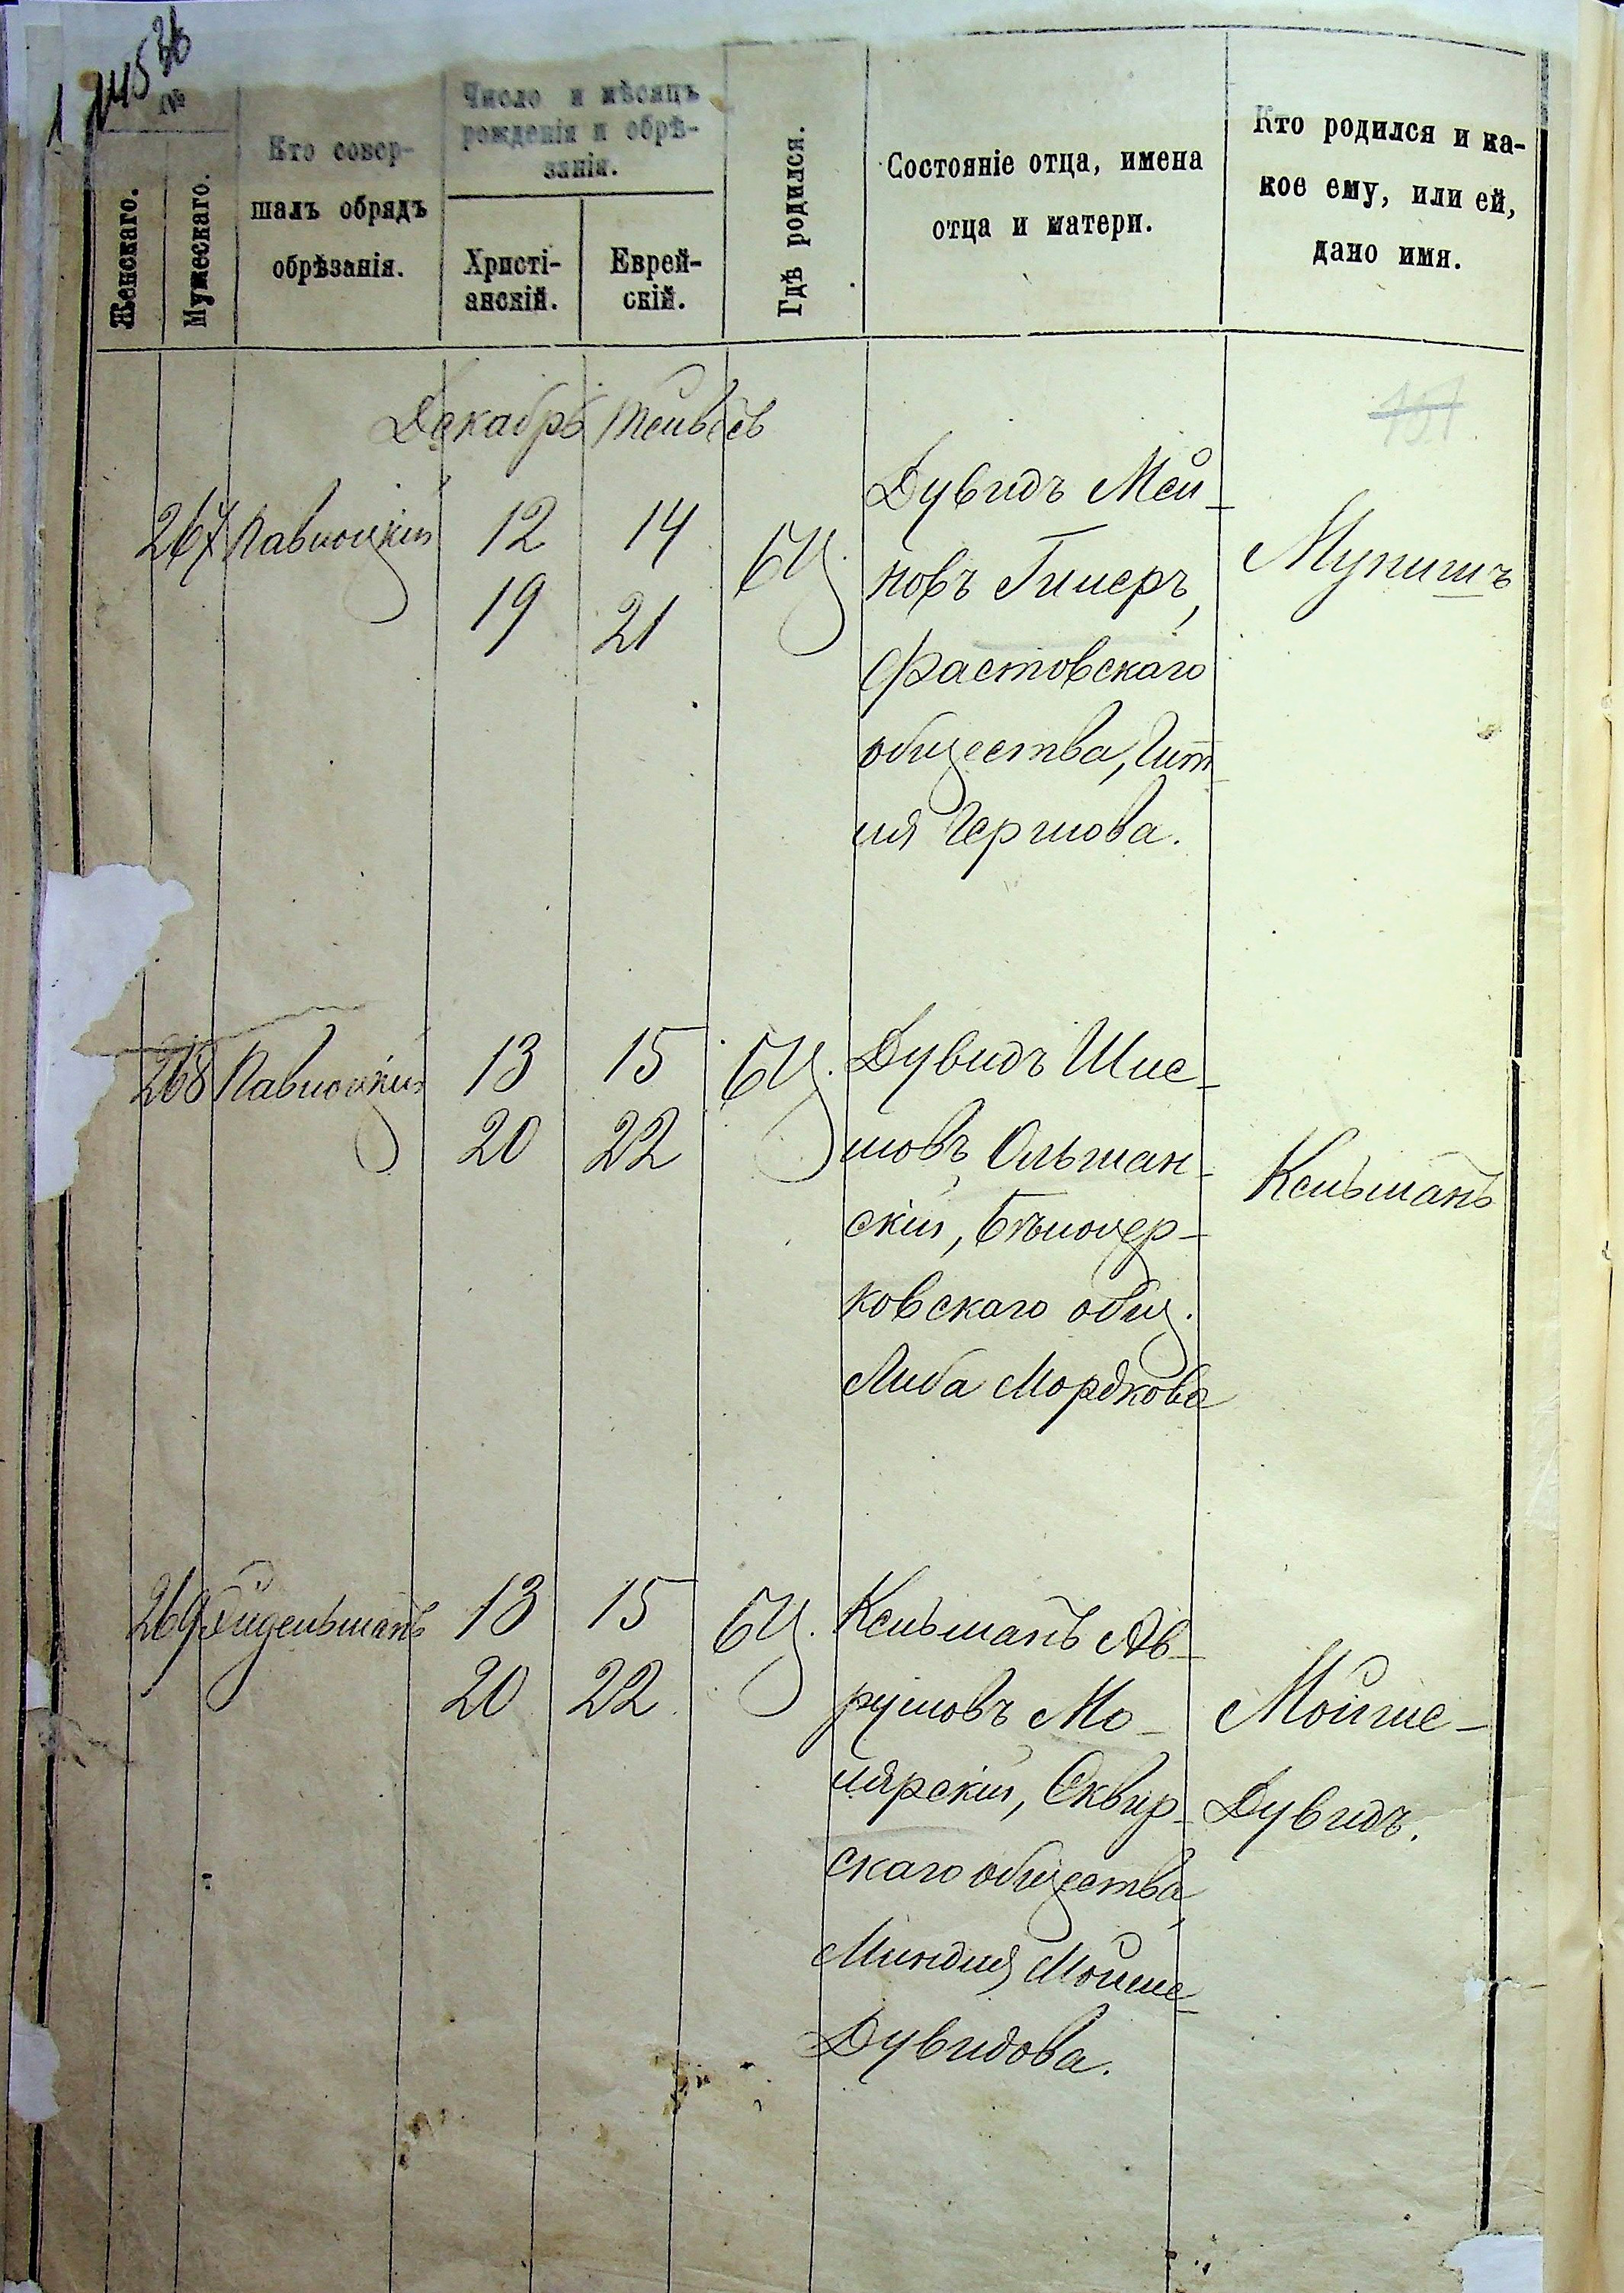 1
245 36
№
Женскаго.
Мужескаго.
Кто совер-
шалъ обрядъ
обрѣзанія.
Число и мѣсяцъ
рожденія и обрѣ-
занія.
Христі-
анскій.
Еврей-
скій.
Гдѣ родился.
Состояніе отца, имена
отца и матери.
Кто родился и ка-
кое ему, или ей,
дано имя.
Декабрь Тейвесъ
267 Павлоцкій 12 14 БЦ.
19 21
Дувидъ Мей-
новъ
Фастовскаго
общества, Гит-
ля Гершова.
Мунишъ
268 Павлоцкій 13 15 БЦ.
20 22
Дувидъ Шле-
мовъ Ольшан-
скій, Бѣлоцер-
ковскаго общ.
Либа Мордкова
Кельманъ
269 Эйдельманъ 13 15 БЦ.
20 22
Кельманъ Ав-
румовъ Мо-
лярскій, Сквир-
скаго общества,
Миндля Мойше-
Дувидова.
Мойше-
Дувидъ.